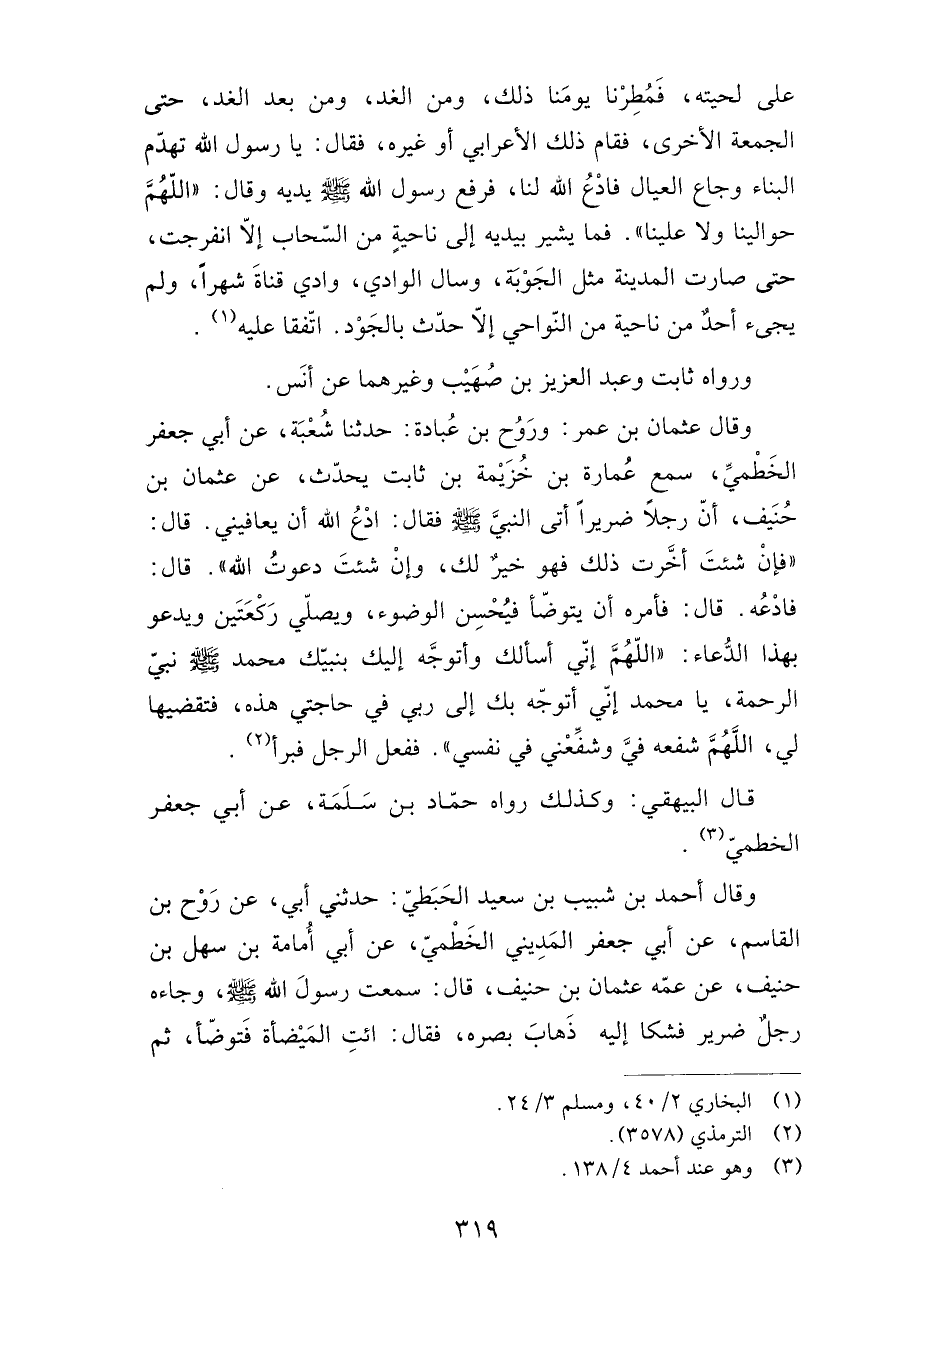 على لحيته، فَمُطِرْنا يومَنا ذلك، ومن الغد، ومن بعد الغد، حتى
الجمعة الأخرى، فقام ذلك الأعرابي أو غيره، فقال: يا رسول الله تهدّم
البناء وجاع العيال فادْعُ الله لنا، فرفع رسول الله ﷺ يديه وقال: «اللّهُمَّ
حوالينا ولا علينا». فما يشير بيديه إلى ناحيةٍ من السّحاب إلاّ انفرجت،
حتى صارت المدينة مثل الجَوْبَة، وسال الوادي، وادي قناةَ شهراً، ولم
يجىء أحدٌ من ناحية من النّواحي إلاّ حدّث بالجَوْد. اتّفقا عليه(١) .
ورواه ثابت وعبد العزيز بن صُهَيْب وغيرهما عن أنَس.
وقال عثمان بن عمر: ورَوْح بن عُبادة: حدثنا شُعْبَة، عن أبي جعفر
الخَطْميِّ، سمع عُمارة بن خُزَيْمة بن ثابت يحدّث، عن عثمان بن
حُنَيف، أنّ رجلاً ضريراً أتى النبيَّ ﷺ فقال: ادْعُ الله أن يعافيني. قال:
«فإنْ شئتَ أخَّرت ذلك فهو خيرٌ لك، وإنْ شئتَ دعوتُ الله». قال:
فادْعُه. قال: فأمره أن يتوضّأ فيُحْسِن الوضوء، ويصلّي رَكْعَتَين ويدعو
بهذا الدُّعاء: «اللّهُمَّ إنّي أسألك وأتوجَّه إليك بنبيّك محمد ﷺ نبيّ
الرحمة، يا محمد إنّي أتوجّه بك إلى ربي في حاجتي هذه، فتقضيها
لي، اللَّهُمَّ شفعه فيَّ وشفِّعْني في نفسي». ففعل الرجل فبرأ(٢) .
قال البيهقي: وكذلك رواه حمّاد بن سَلَمَة، عن أبي جعفر
الخطميّ(٣) .
وقال أحمد بن شبيب بن سعيد الحَبَطيّ: حدثني أبي، عن رَوْح بن
القاسم، عن أبي جعفر المَدِيني الخَطْميّ، عن أبي أُمامة بن سهل بن
حنيف، عن عمّه عثمان بن حنيف، قال: سمعت رسولَ الله ﷺ، وجاءه
رجلٌ ضرير فشكا إليه ذَهابَ بصره، فقال: ائتِ المَيْضأة فَتوضّأ، ثم
(١) البخاري ٢/ ٤٠، ومسلم ٣/ ٢٤.
(٢) الترمذي (٣٥٧٨).
(٣) وهو عند أحمد ٤/ ١٣٨.
٣١٩